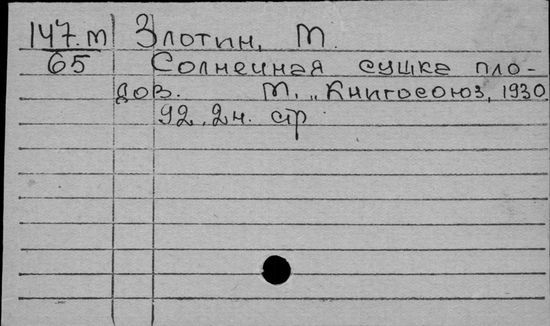 147.М Злотин, М.
65 Солнечная сушка пло-
дов. М., Книгосоюз, 1930
92, 2н. стр